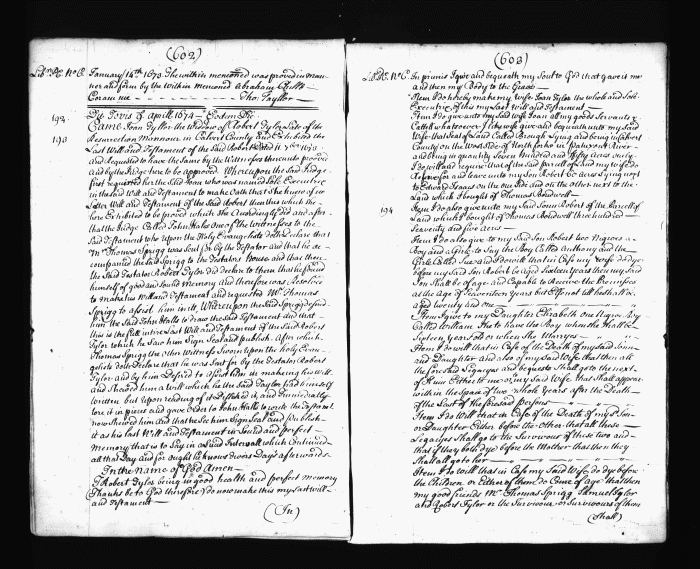 (602)
January 14th 1673. The within mentioned was proved in man
ner and form by the Within Mentioned Abraham
Coram me - - - - - Tho: Tayllor -
192. Die Jovis 9 Aprill 1674 -
193 Came Joan Tyllor the Widdow of Robert Tyler Late of the
Resurrection Mannour in Calvert County and Exhibited the
Last Will and Testament of the said Robert
and Requested to have the same by the Witnesses thereunto proved
and by the Judge to be approved. Whereupon the said Judge
first required the said Joan who was named Sole Executrix
in the said Will and Testament to make Oath that She knew of no
Latter Will and Testament of the said Robert then this which She
here Exhibited to be proved which She Accordingly did and after
that the Judge Called John Halls one of the witnesses to the
said Testament who upon the Holy Evangelists doth Declare that
Mr Thomas Sprigg was sent for by the Testator and that he ac
companyed the said Sprigg to the Testators House and that then
the said Testator Robert Tyler did declare to them that he found
himself of good and sound Memory and therefore was Resolved
to make his Will and Testament and requested Mr Thomas
Sprigg to assist him in itt, Whereupon the said Sprigg desired
him the said John Halls to draw the said Testament and that
this is the full intire Last Will and Testament of the said Robert
Tyler which he saw him Sign Seal and publish. After which
Thomas Sprigg the other Witness Sworn upon the Holy Evan
gelists doth Declare that he was Sent for by the Testator Robert
Tylor and by him Desired to assist him in making his will
and Shewed him a Will which he the said Taylor had himself
written but upon reading of it Disliked it, and Immediatly
tore it in pieces and gave Order to John Halls to write the Testament
now Shewed him And that he See him Sign Seal and Publish
it as his Last Will and Testament in Sound and perfect
Memory that is to Say in a Lucid Intervall which Continued
all that Day and for ought he knows divers Days afterwards
In the name of God Amen -
I Robert Tyler being in good health and perfect memory
(thanks be to God therefore) do now make this my last will
and Testament -
(In)
(603)
In primis I give and bequeath my Soul to God that gave it me
and then my Body to the Grave
Item I do hereby make my wife Joan Tyler the whole and Sole
Executrix, of this my Last Will and Testament -
Item I do give unto my said Wife Joan all my goods Servants &
Cattell whatsoever I likewise give and bequeath unto my said
Wife that Neck of Land Called Brough Lying and being in Calvert
County on the West Side of North forke in Patuxent River
and being in quantity Seven hundred and fifty Acres only
I do will and require that of the said parcell of Land my wife do
and leave unto my son Robert 60 Acres Lying next
to Edward Isaacs on the one side and on the other next to the
Land which I bought of Thomas Bordwell -
194 Item I do also give unto my said Sonn Robert of the Parcell of
Land which I bought of Thomas Bordwell three hundred
Seaventy and five Acres -
Item I do also give to my said Son Robert two Negroes a
Boy and a Girle to Say the Boy Called Anthony and the
Girle Called and I do will that in Case my Wife do dye
before my said Son Robert be aged Sixteen years then my said
Son Shall be of age and Capable to Receive the Premises
at the Age of Seaventeen years but if not let he shall be
aged twenty and one -
Item I give to my Daughter Elizabeth one Negro Boy
Called William She to have the Boy when She Shall be
Sixteen years old or when She Marryes -
Item I do will that in Case of the Death of my said Sonn
and Daughter and also of my said Wife that then all
the foresaid Legacyes and bequests Shall go to the next
of Kinn Either to me or my said Wife that Shall appear
within the Space of two whole years after the Death
of the Last of the deceased Persons -
Item I do Will that in Case of the Death of my Son
or Daughter Either before the Other that all those
Legacyes Shall go to the Survivour of those two and
that if they both dye before the Mother that then they
Shall all go to her -
Item I do will that in Case my Said Wife do dye before
the Children or Either of them do Come of age that then
my good friends Mr Thomas Sprigg Samuel Tylor
and Robert Tylor or the Survivour or Survivours of them
(Shall)